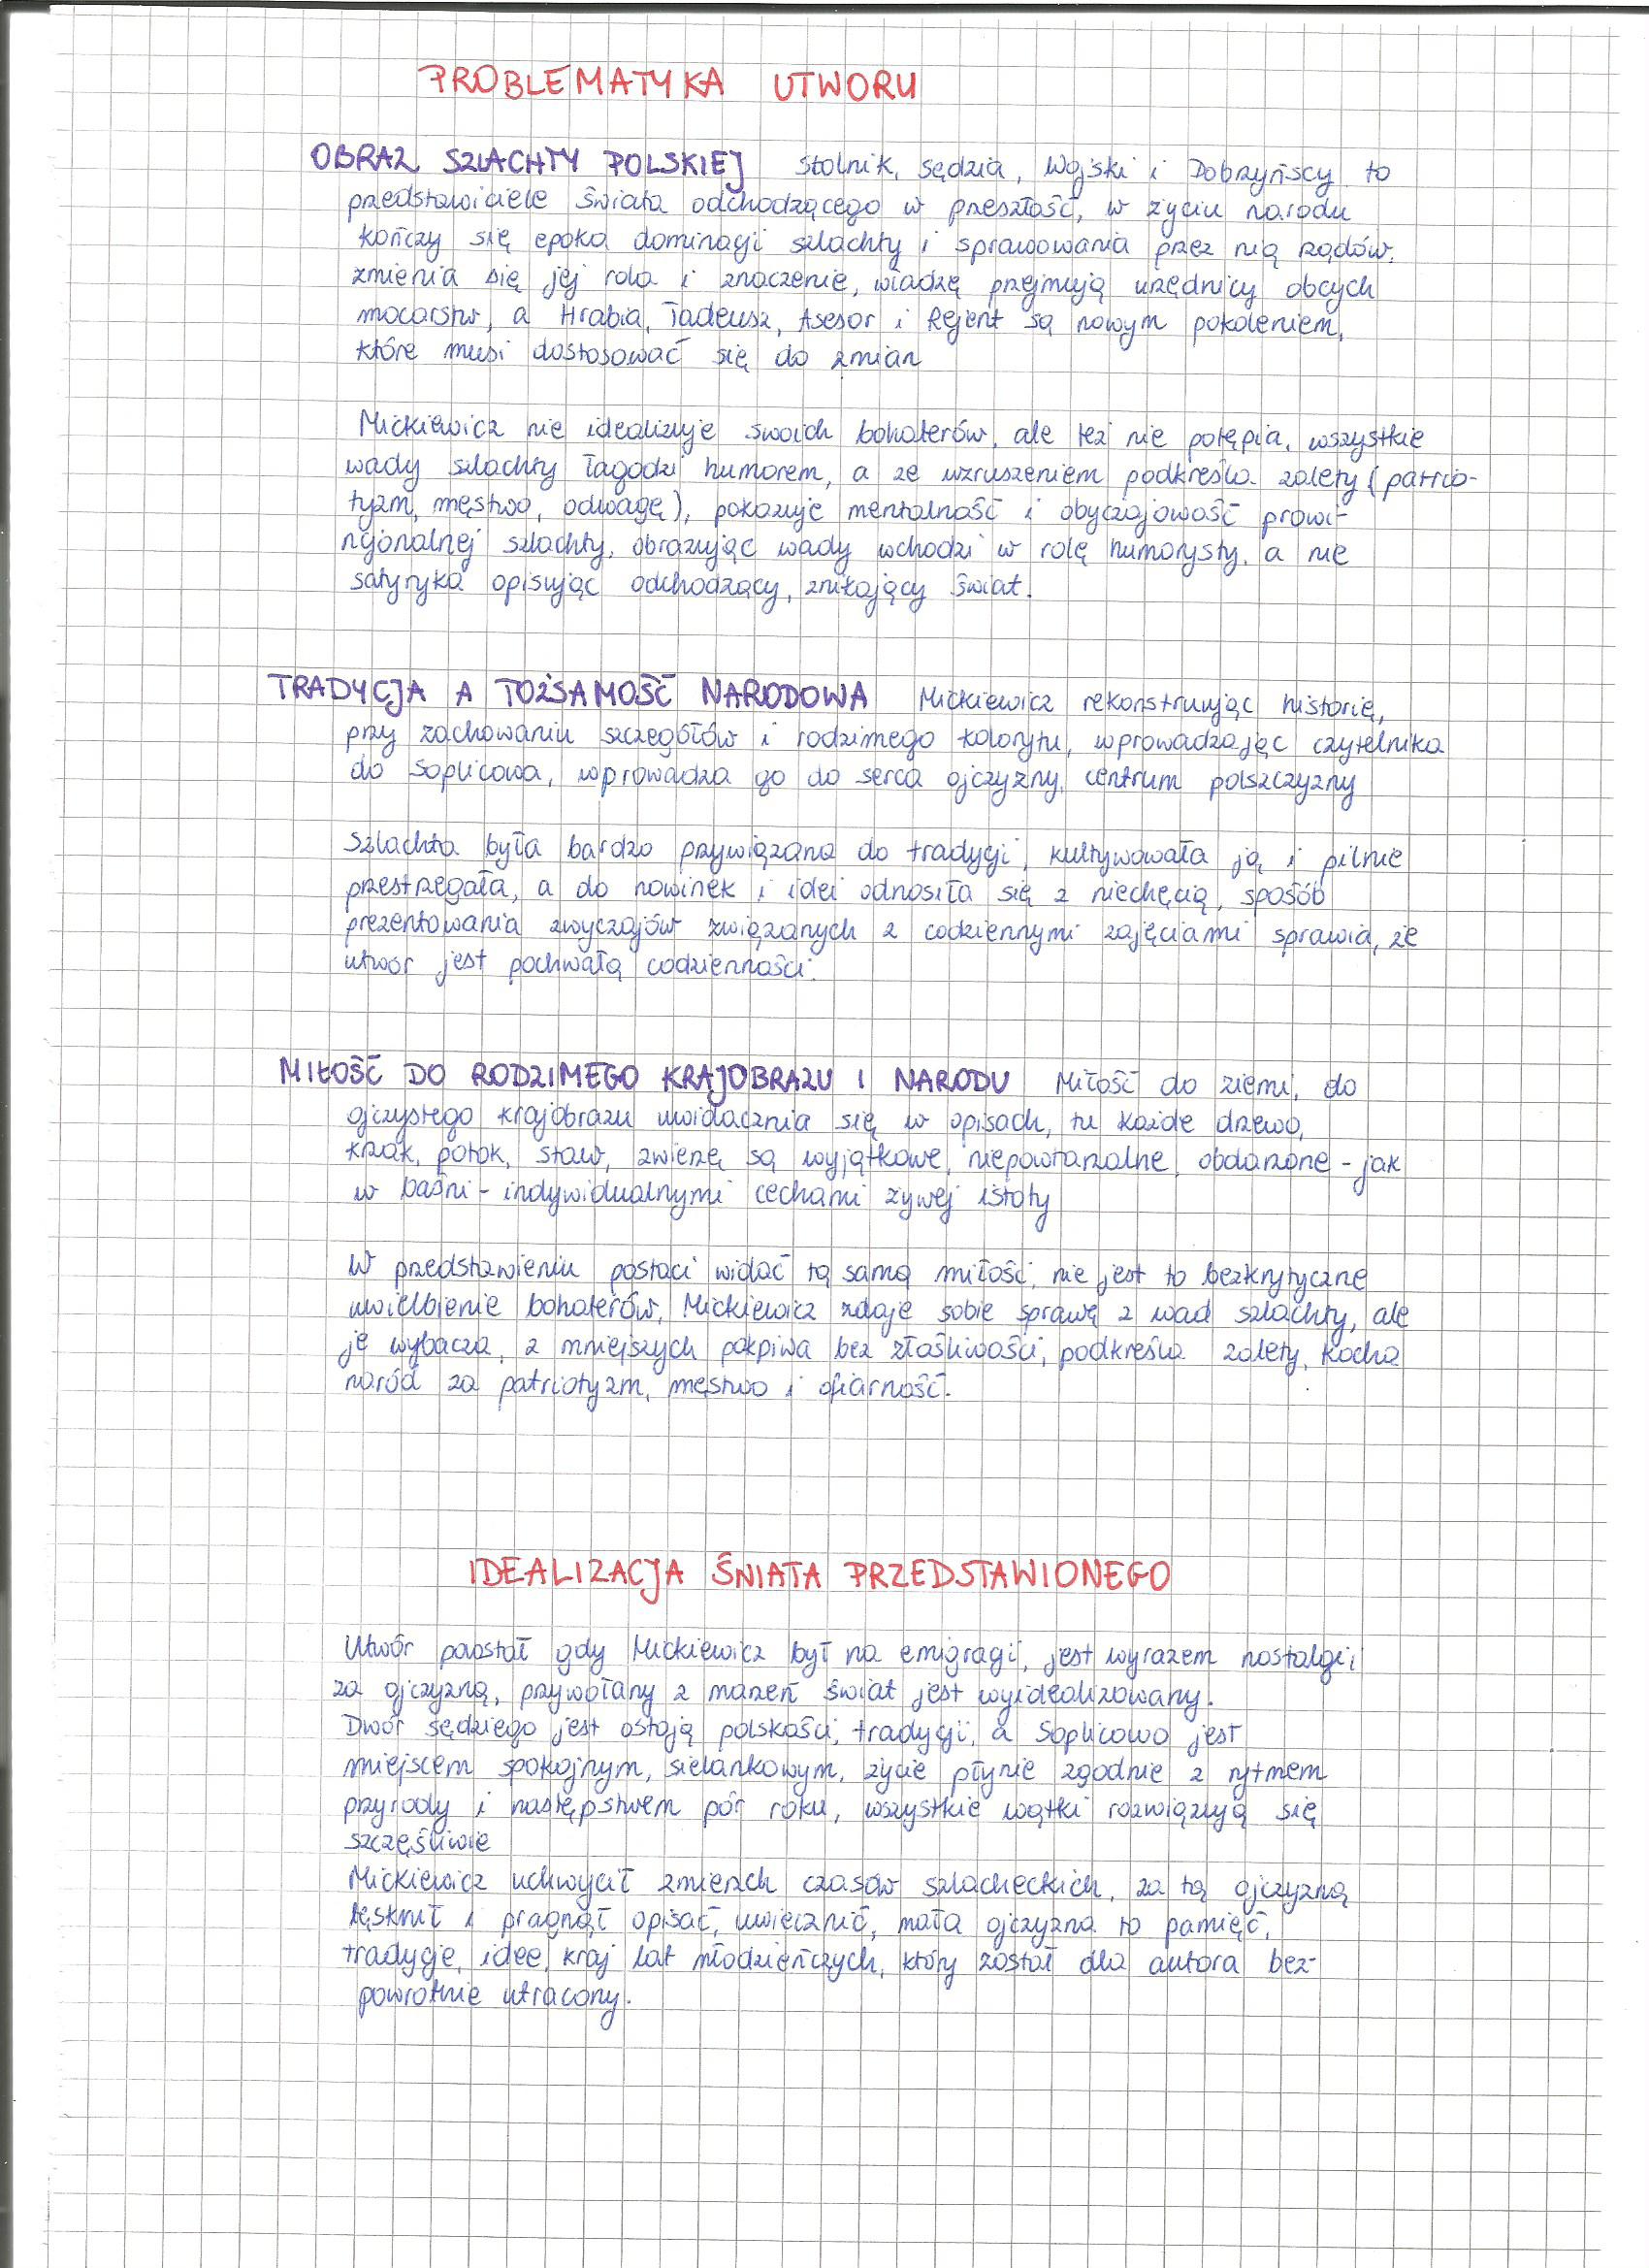 PROBLEMATYKA UTWORU
OBRAZ SZLACHTY POLSKIEJ Stolnik, Sędzia, Wojski i Dobrzyńscy to
przedstawiciele świata odchodzącego w przeszłość, w życiu narodu
kończy się epoka dominacji szlachty i sprawowania przez nią rządów,
zmienia się jej rola i znaczenie, władzę przejmują urzędnicy obcych
mocarstw, a Hrabia, Tadeusz, Asesor i Rejent są nowym pokoleniem,
które musi dostosować się do zmian
Mickiewicz nie idealizuje swoich bohaterów, ale też nie potępia, wszystkie
wady szlachty łagodzi humorem, a ze wzruszeniem podkreśla zalety (patrio-
tyzm, męstwo, odwagę), pokazuje mentalność i obyczajowość prowi-
ncjonalnej szlachty, obrazując wady wchodzi w rolę humorysty, a nie
satyryka opisując odchodzący, znikający świat.
TRADYCJA A TOŻSAMOŚĆ NARODOWA Mickiewicz rekonstruując historię,
przy zachowaniu szczegółów i rodzimego kolorytu, wprowadzając czytelnika
do Soplicowa, wprowadza go do serca ojczyzny, centrum polszczyzny
Szlachta była bardzo przywiązana do tradycji, kultywowała ją i pilnie
przestrzegała, a do nowinek i idei odnosiła się z niechęcią, sposób
prezentowania zwyczajów związanych z codziennymi zajęciami sprawia, że
utwór jest pochwałą codzienności.
MIŁOŚĆ DO RODZIMEGO KRAJOBRAZU I NARODU Miłość do ziemi, do
ojczystego krajobrazu uwidacznia się w opisach, tu każde drzewo,
krzak, potok, staw, zwierzę są wyjątkowe, niepowtarzalne, obdarzone - jak
w baśni - indywidualnymi cechami żywej istoty
W przedstawieniu postaci widać tą samą miłość, nie jest to bezkrytyczne
uwielbienie bohaterów, Mickiewicz zdaje sobie sprawę z wad szlachty, ale
je wybacza, z mniejszych pokpiwa bez złośliwości, podkreśla zalety, kocha
naród za patriotyzm, męstwo i ofiarność.
IDEALIZACJA ŚWIATA PRZEDSTAWIONEGO
Utwór powstał gdy Mickiewicz był na emigracji, jest wyrazem nostalgii
za ojczyzną, przywołany z marzeń świat jest wyidealizowany.
Dwór sędziego jest ostoją polskości, tradycji, a Soplicowo jest
miejscem spokojnym, sielankowym, życie płynie zgodnie z rytmem
przyrody i następstwem pór roku, wszystkie wątki rozwiązują się
szczęśliwie
Mickiewicz uchwycił zmierzch czasów szlacheckich, za tą ojczyzną
tęsknił i pragnął opisać, uwiecznić, mała ojczyzna to pamięć,
tradycje, idee, kraj lat młodzieńczych, który został dla autora bez-
powrotnie utracony.